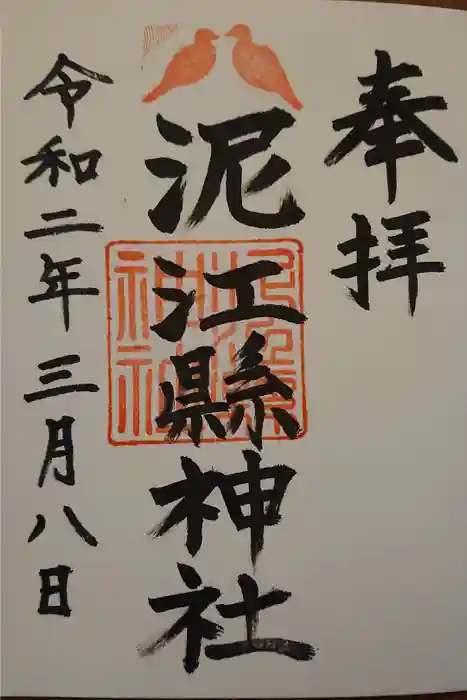 奉拝
泥江縣神社
令和二年三月八日